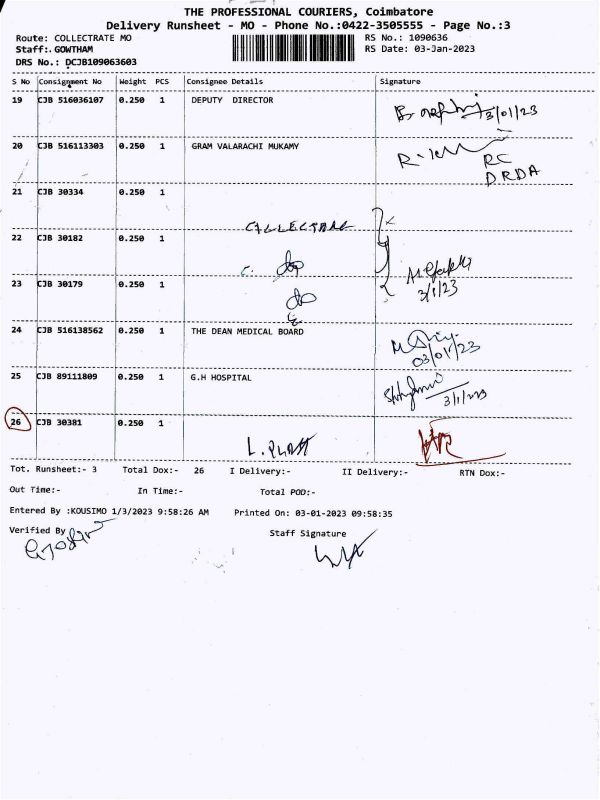 THE PROFESSIONAL COURIERS, Coimbatore
Delivery Runsheet - MO - Phone No.:0422-3505555 - Page No.:3
Route: COLLECTRATE MO RS No.: 1090636
Staff: GOWTHAM RS Date: 03-Jan-2023
DRS No.: DCJB109063603
S No Consignment No Weight PCS Consignee Details Signature
19 CJB 516036107 0.250 1 DEPUTY DIRECTOR
3/01/23
20 CJB 516113303 0.250 1 GRAM VALARACHI MUKAMY
RC
DRDA
21 CJB 30334 0.250 1
COLLECTRAL
22 CJB 30182 0.250 1
do
23 CJB 30179 0.250 1
do
3/1/23
24 CJB 516138562 0.250 1 THE DEAN MEDICAL BOARD
03/01/23
25 CJB 89111809 0.250 1 G.H HOSPITAL
3/1/2023
26 CJB 30381 0.250 1
Tot. Runsheet:- 3 Total Dox:- 26 I Delivery:- II Delivery:- RTN Dox:-
Out Time:- In Time:- Total POD:-
Entered By :KOUSIMO 1/3/2023 9:58:26 AM Printed On: 03-01-2023 09:58:35
Verified By Staff Signature